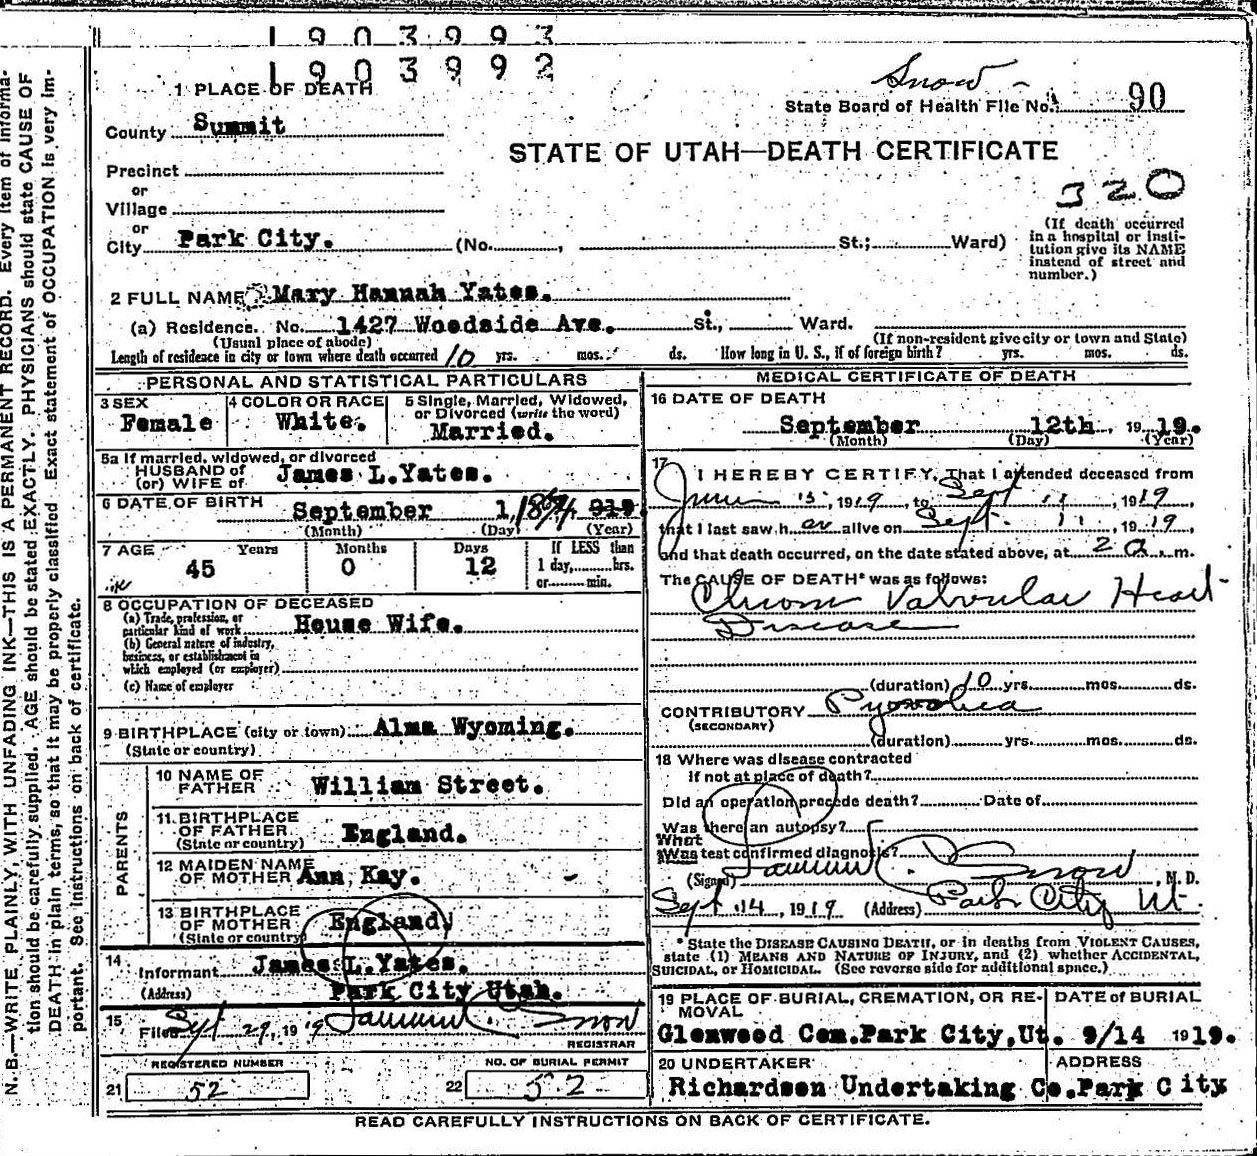 1903993
1903992
Snow
State Board of Health File No. 90
1 PLACE OF DEATH
County Summit
STATE OF UTAH—DEATH CERTIFICATE
320
Precinct
or
Village
or
City Park City. (No. , St.; Ward)
(If death occurred in a hospital or insti-
tution give its NAME instead of street and number.)
2 FULL NAME Mary Hannah Yates.
(a) Residence. No. 1427 Woodside Ave. St., Ward.
(Usual place of abode) (If non-resident give city or town and State)
Length of residence in city or town where death occurred 10 yrs. mos. ds. How long in U. S., if of foreign birth? yrs. mos. ds.
PERSONAL AND STATISTICAL PARTICULARS
3 SEX
Female
4 COLOR OR RACE
White.
5 Single, Married, Widowed,
or Divorced (write the word)
Married.
5a If married, widowed, or divorced
HUSBAND of
(or) WIFE of James L.Yates.
6 DATE OF BIRTH September 1, 1874 919.
(Month) (Day) (Year)
7 AGE Years Months Days If LESS than
45 0 12 1 day, hrs.
or min.
8 OCCUPATION OF DECEASED
(a) Trade, profession, or
particular kind of work House Wife.
(b) General nature of industry,
business, or establishment in
which employed (or employer)
(c) Name of employer
9 BIRTHPLACE (city or town) Alma Wyoming.
(State or country)
PARENTS
10 NAME OF
FATHER William Street.
11 BIRTHPLACE
OF FATHER England.
(State or country)
12 MAIDEN NAME
OF MOTHER Ann Kay.
13 BIRTHPLACE
OF MOTHER England.
(State or country)
14
Informant James L.Yates.
(Address) Park City Utah.
15
Filed Sept 29, 1919 Snow
REGISTRAR
REGISTERED NUMBER
21 52
NO. OF BURIAL PERMIT
22 52
MEDICAL CERTIFICATE OF DEATH
16 DATE OF DEATH
September 12th, 1919.
(Month) (Day) (Year)
17
I HEREBY CERTIFY, That I attended deceased from
June 15, 1919, to Sept 11, 1919
that I last saw her alive on Sept. 11, 1919,
and that death occurred, on the date stated above, at 2 a.m.
The CAUSE OF DEATH* was as follows:
Chronic Valvular Heart
Disease
(duration) 10 yrs. mos. ds.
CONTRIBUTORY Pyorrhea
(SECONDARY)
(duration) yrs. mos. ds.
18 Where was disease contracted
if not at place of death?
Did an operation precede death? Date of
Was there an autopsy?
What
Was test confirmed diagnosis?
(Signed) Snow, M. D.
Sept 14, 1919 (Address) Park City Ut.
* State the DISEASE CAUSING DEATH, or in deaths from VIOLENT CAUSES,
state (1) MEANS AND NATURE OF INJURY, and (2) whether ACCIDENTAL,
SUICIDAL, or HOMICIDAL. (See reverse side for additional space.)
19 PLACE OF BURIAL, CREMATION, OR RE-
MOVAL
Glenwood Cem.Park City,Ut.
DATE OF BURIAL
9/14 1919.
20 UNDERTAKER
Richardson Undertaking Co.
ADDRESS
Park City
READ CAREFULLY INSTRUCTIONS ON BACK OF CERTIFICATE.
N. B.—WRITE PLAINLY, WITH UNFADING INK—THIS IS A PERMANENT RECORD. Every item of informa-
tion should be carefully supplied. AGE should be stated EXACTLY. PHYSICIANS should state CAUSE OF
DEATH in plain terms, so that it may be properly classified. Exact statement of OCCUPATION is very im-
portant. See instructions on back of certificate.